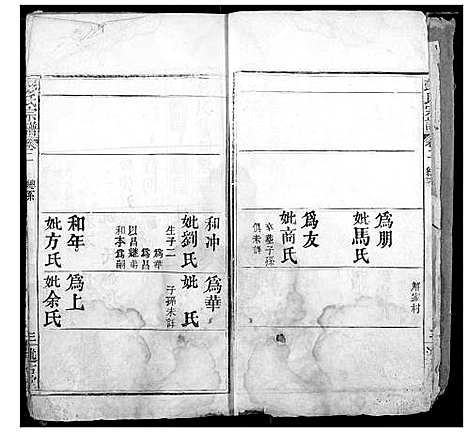 爲朋
妣馬氏
爲友
妣商氏
卒塟子孫
俱未詳
和冲
妣劉氏
生子二
爲華
爲昌
以昌繼弟
和本爲嗣
和年
妣方氏
爲華
妣 氏
子孫未詳
爲上
妣余氏
氏宗譜
卷二
總系
三